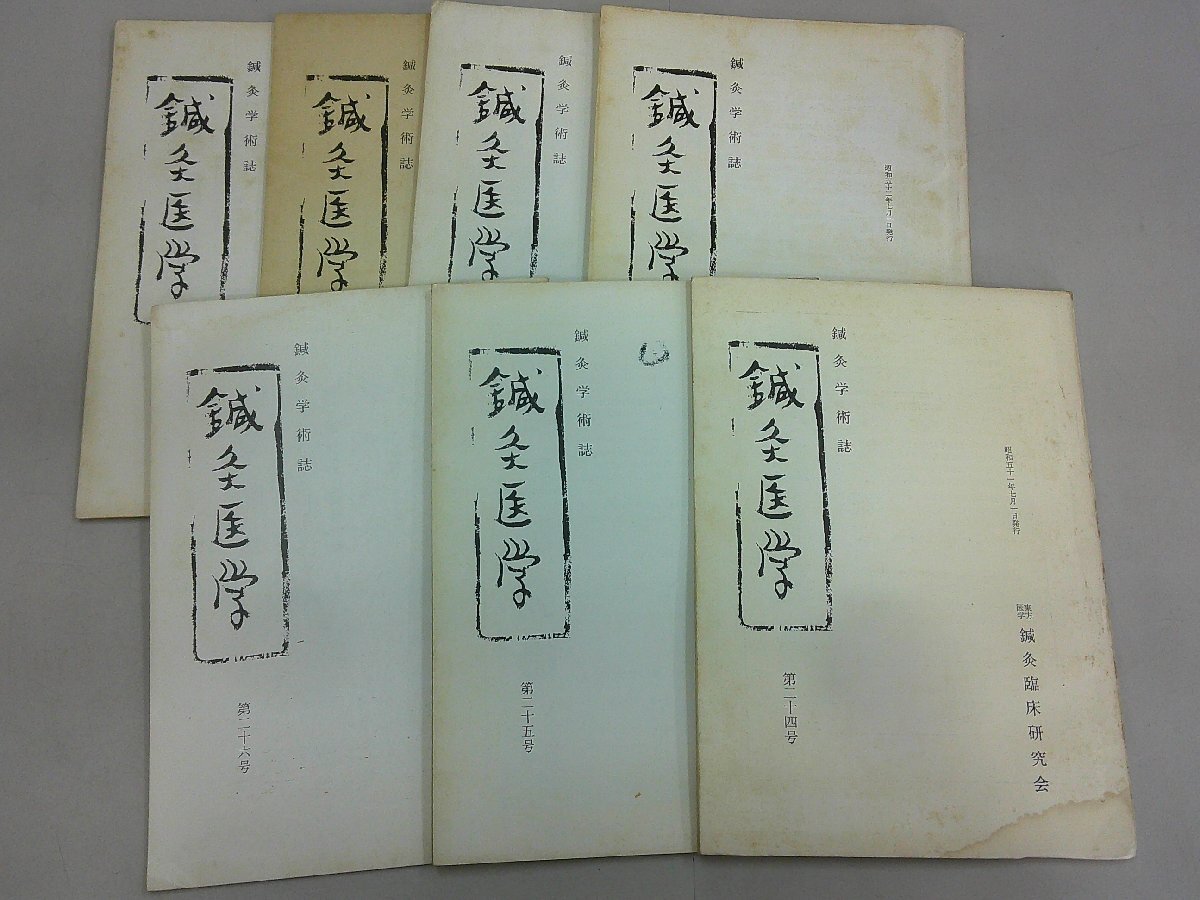 鍼灸学術誌
鍼灸医学
鍼灸学術誌
鍼灸医学
鍼灸学術誌
鍼灸医学
鍼灸学術誌
鍼灸医学
鍼灸学術誌
鍼灸医学
第二十六号
鍼灸学術誌
鍼灸医学
第二十五号
鍼灸学術誌
鍼灸医学
第二十四号
昭和五十一年七月一日発行
東方医学
鍼灸臨床研究会